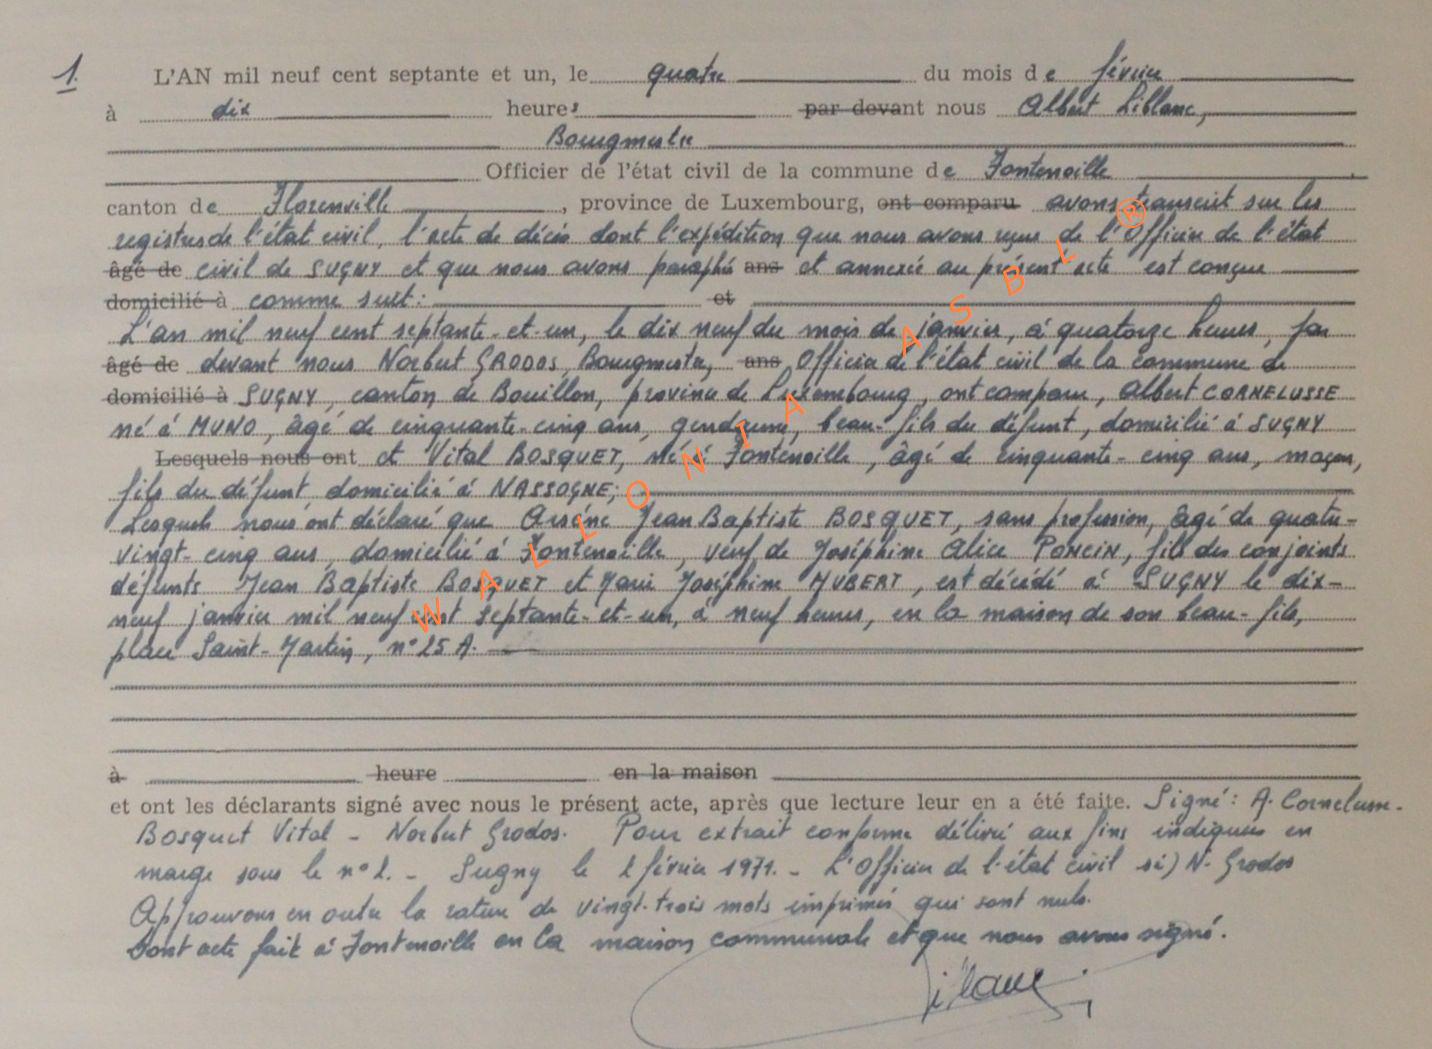 1.
L'AN mil neuf cent septante et un, le quatre du mois de février
à dix heures par devant nous Albert Liblanc,
Bourgmestre
Officier de l'état civil de la commune de Fontenoille
canton de Florenville, province de Luxembourg, ont comparu avons transcrit sur les
registres de l'état civil, l'acte de décès dont l'expédition que nous avons reçue de l'Officier de l'état
âgé de civil de SUGNY et que nous avons paraphé ans et annexée au présent acte est conçue
domicilié à comme suit: et
L'an mil neuf cent septante-et-un, le dix neuf du mois de janvier, à quatorze heures, par
âgé de devant nous Norbert GRODOS, Bourgmestre, ans Officier de l'état civil de la commune de
domicilié à SUGNY, canton de Bouillon, province de Luxembourg, ont comparu, Albert CORNELUSSE
né à MUNO, âgé de cinquante-cinq ans, gendarme, beau-fils du défunt, domicilié à SUGNY
Lesquels nous ont et Vital BOSQUET, né à Fontenoille, âgé de cinquante-cinq ans, maçon,
fils du défunt domicilié à NASSOGNE;
Lesquels nous ont déclaré que Arsène Jean Baptiste BOSQUET, sans profession, âgé de quatre-
vingt-cinq ans, domicilié à Fontenoille, veuf de Joséphine Alice PONCIN, fils des conjoints
défunts Jean Baptiste BOSQUET et Marie Joséphine HUBERT, est décédé à SUGNY le dix-
neuf janvier mil neuf cent septante-et-un, à neuf heures, en la maison de son beau-fils,
place Saint-Martin, n° 25 A.
à heure en la maison
et ont les déclarants signé avec nous le présent acte, après que lecture leur en a été faite. Signé: A. Cornelusse-
Bosquet Vital - Norbert Grodos. Pour extrait conforme délivré aux fins indiquées en
marge sous le n° 2. - Sugny le 2 février 1971. - L'Officier de l'état civil sé) N. Grodos
Approuvons en outre la rature de vingt-trois mots imprimés qui sont nuls.
Dont acte fait à Fontenoille en la maison communale et que nous avons signé.
Liblanc
WALLONIA ASBL ®